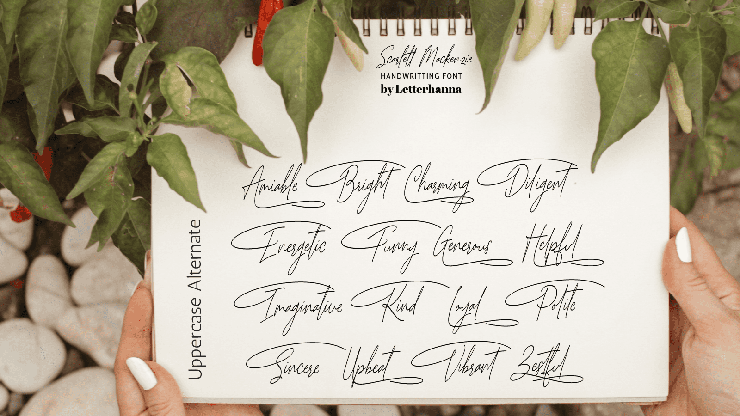 Scarlett Mackenzie
HANDWRITTING FONT
by Letterhanna
Uppercase Alternate
Amiable Bright Charming Diligent
Energetic Funny Generous Helpful
Imaginative Kind Loyal Polite
Sincere Upbeat Vibrant Zestful